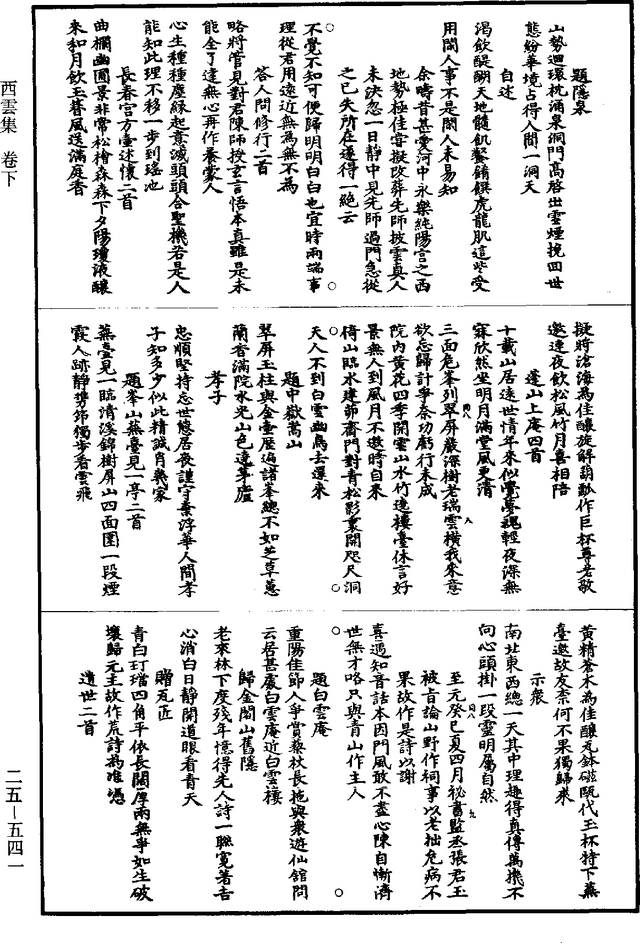 西雲集　卷下
二五—五四一
題隱泉
山勢迴環枕涌泉洞門高啓出雲煙挽回世
態紛華境占得人間一洞天
自述
渴飲醍醐天地髓飢餐鋪饌虎龍肌這些受
用閑人事不是閑人未易知
余疇昔甚愛河中永樂純陽宮之西
地勢極佳嘗擬改葬先師披雲真人
未決忽一日靜中見先師過門急從
之已失所在遂得一絕云
不覺不知可便歸明明白白也宜時兩端事
理從君用遠近無為無不為
答人問修行二首
略將管見對君陳師授玄言悟本真雖是未
能全了達無心再作養愛人
心生種種塵緣起意滅頭頭合聖機若是人
能知此理不移一步到瑤池
長春宮方壺述懷二首
曲欄幽圃景非常松檜森森下夕陽瓊液釀
來和月飲玉簪風送滿庭香
擬將滄海為佳釀旋解葫瓢作巨杯尊老敬
邀連夜飲松風竹月喜相陪
蓬山上庵四首
十載山居遠世情年來似覺夢魂輕夜深無
寐欣然坐明月滿堂風更清
三面危峯列翠屏巖深樹老瑞雲橫我來意
欲忘歸計爭奈功虧行未成
院內黃花四季開雲山水竹遶樓臺休言好
景無人到風月不邀時自來
倚山臨水建茆齋門對青松影裏開咫尺洞
天人不到白雲幽鳥去還來
題中嶽嵩山
翠屏玉柱與金壺歷遍諸峯總不如芝草蕙
蘭香滿院水光山色遶茅廬
孝子
忠順堅持忘世態居喪謹守棄浮華人間孝
子知多少似此精誠肯幾家
題峯山燕臺見一亭二首
燕臺見一臨清溪錦樹屏山四面圍一段煙
霞人跡靜攜筇獨步看雲飛
黃精蒼朮為佳釀瓦鉢磁甌代玉杯特下燕
臺邀故友奈何不果獨歸來
示衆
南北東西總一天其中理趣得真傳萬機不
向心頭掛一段靈明屬自然
至元癸巳夏四月秘書監丞張君玉
被旨論山野作祠事以老拙危病不
果故作是詩以謝
喜遇知音話本因門風敢不盡心陳自慚濟
世無才略只與青山作主人
題白雲庵
重陽佳節人爭賞藜杖長拖與衆遊仙館問
云居甚處白雲庵近白雲樓
歸金閣山舊隱
老來林下度殘年憶得先人詩一聯寬著吉
心消白日靜開道眼看青天
贈瓦匠
青白玎璫四角平依長闊厚兩無爭如生破
壞歸元主故作荒詩為准憑
遺世二首